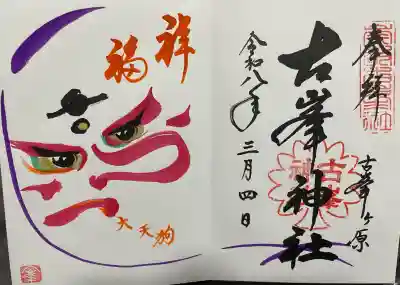 奉拝
古峯ヶ原
古峯神社
令和八年
三月四日
祥
福
大天狗